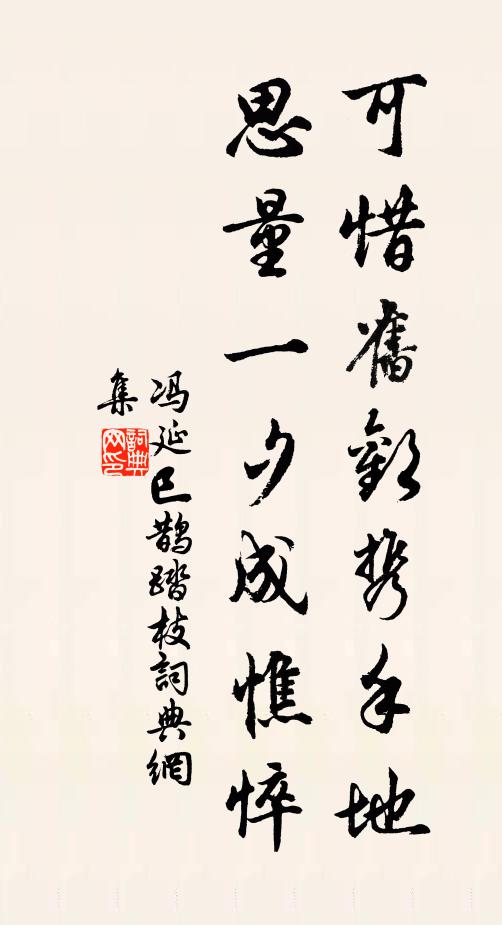 可惜舊歡携手地
思量一夕成憔悴
冯延巳鵲踏枝詞典網
集
詞典網印